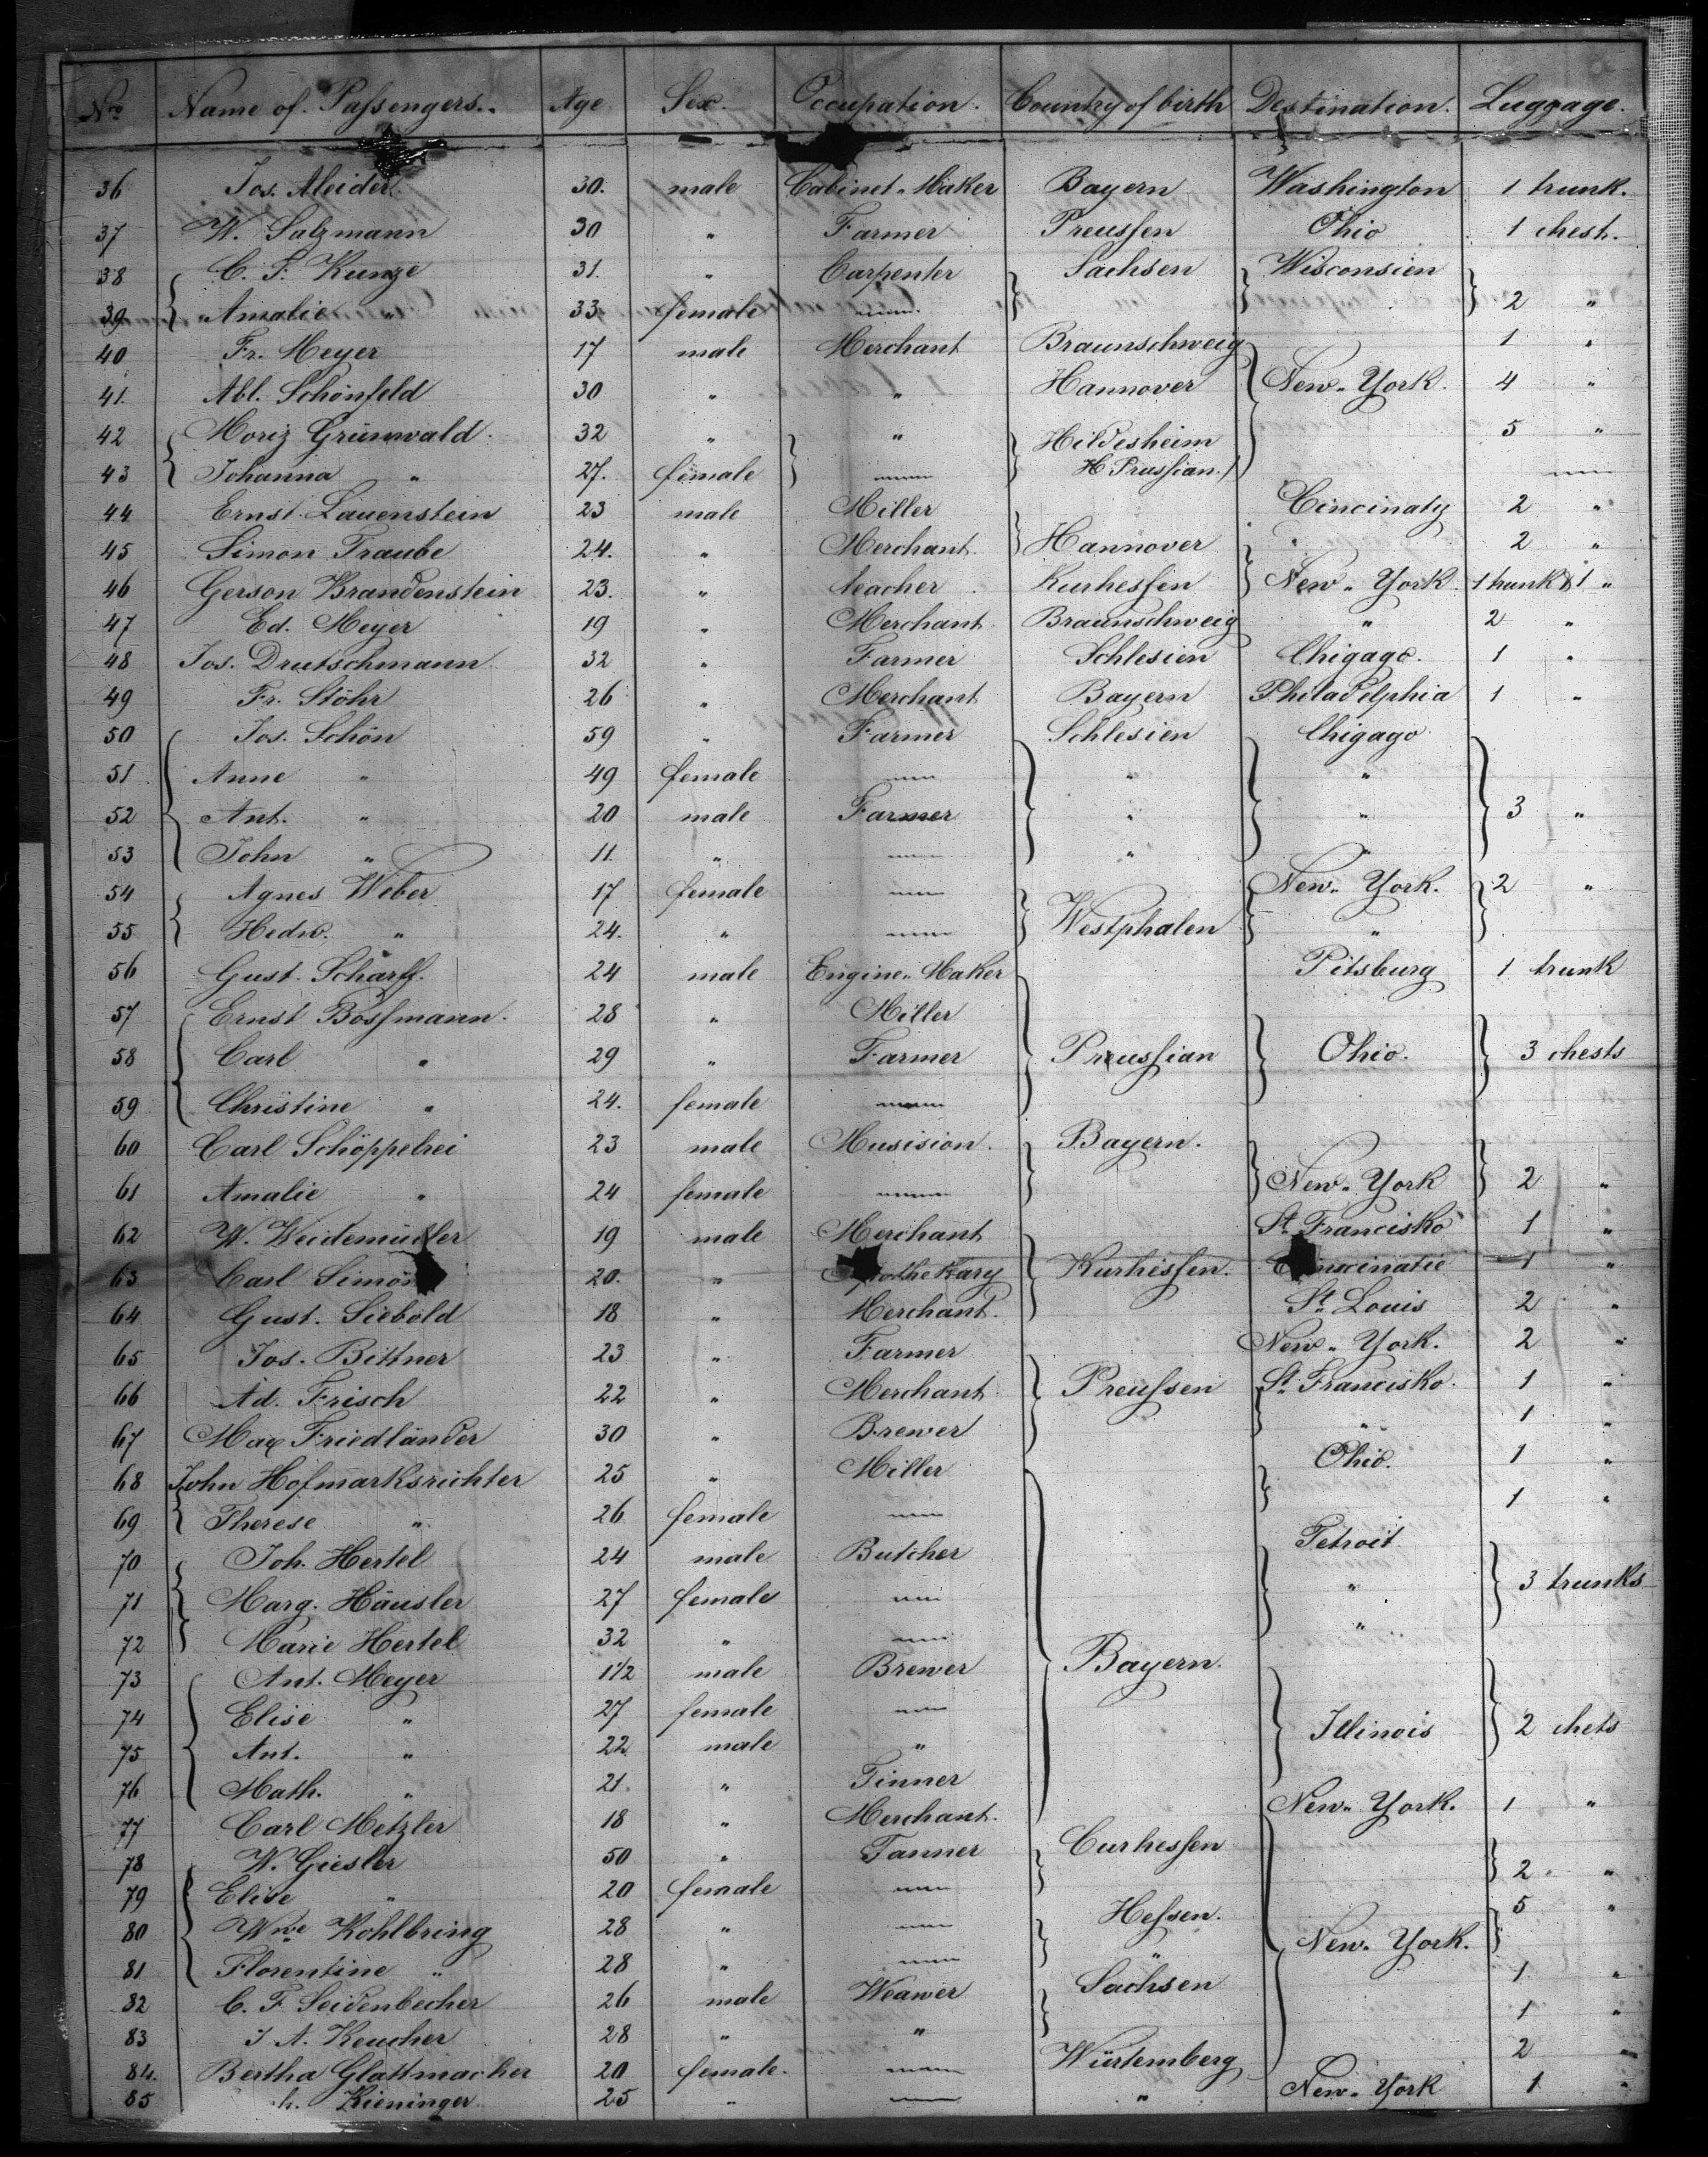 Nro Name of Passengers. Age Sex. Occupation. Country of birth Destination. Luggage.
36 Jos. Meider 30. male Cabinet-Maker Bayern Washington 1 trunk.
37 W. Salzmann 30 " Farmer Preussen Ohio 1 chest.
38 C. F. Kunze 31. " Carpenter Sachsen Wisconsien
39 Amalie " 33 female 2 "
40 Fr. Meyer 17 male Merchant Braunschweig 1 "
41. Abl. Schönfeld 30 " " Hannover New-York. 4 "
42 Moriz Grünwald. 32 " " Hildesheim 5 "
43 Johanna " 27. female H Prussian.
44 Ernst Lauenstein 23 male Miller Cincinaty 2 "
45 Simon Traube 24. " Merchant Hannover " 2 "
46 Gerson Brandenstein 23. " teacher Kurhessen New-York 1 trunk & 1 "
47 Ed. Meyer 19 " Merchant Braunschweig " 2 "
48 Jos. Drutschmann 32 " Farmer Schlesien Chigago. 1 "
49 Fr. Stöhr 26 " Merchant Bayern Philadelphia 1 "
50 Jos. Schön 59 " Farmer Schlesien Chigago
51 Anne " 49 female " "
52 Ant. " 20 male Farmer " " 3 "
53 John " 11. " " "
54 Agnes Weber 17 female New-York. 2 "
55 Hedw. " 24. " Westphalen "
56 Gust. Scharff. 24 male Engine-Maker Pitsburg 1 trunk
57 Ernst Bossmann. 28 " Miller
58 Carl " 29 " Farmer Preussian Ohio. 3 chests
59 Christine " 24. female
60 Carl Schöppelrei 23 male Musision. Bayern.
61 Amalie " 24 female New-York 2 "
62 W. Weidemüller 19 male Merchant St. Francisko 1 "
63 Carl Simon 20. " Kurhessen. 1 "
64 Gust. Siebold 18 " Merchant. St. Louis 2 "
65 Jos. Bittner 23 " Farmer New-York. 2 "
66 Ad. Frisch 22 " Merchant Preussen St. Francisko. 1 "
67 Max Friedländer 30 " Brewer " 1 "
68 John Hofmarksrichter 25 " Miller Ohio. 1 "
69 Therese " 26 female 1 "
70 Joh. Hertel 24 male Butcher Tetroit
71 Marg. Häusler 27 female " 3 trunks
72 Marie Hertel 32 " "
73 Ant. Meyer 1 1/2 male Brewer Bayern.
74 Elise " 27 female Illinois 2 chets
75 Ant. " 22 male "
76 Math. " 21. " Tinner
77 Carl Metzler 18 " Merchant. New-York. 1 "
78 W. Giesler 50 " Tanner Curhessen
79 Elise " 20 female 2 "
80 Wwe Kohlbring 28 " Hessen. New-York. 5 "
81 Florentine " 28 " "
82 C. F. Seidenbecher 26 male Weawer Sachsen 1 "
83 J A. Keucher 28 " " 1 "
84. Bertha Glattmacher 20 female. Würtemberg 2 "
85 h. Kieninger. 25 " " New-York 1 "